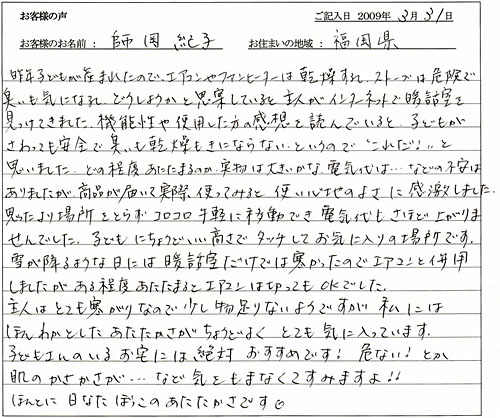 お客様の声 ご記入日 2009年 3月 31日
お客様のお名前： 師岡 紀子 お住まいの地域： 福岡県
昨年子どもが産まれたので、エアコンやファンヒーターは乾燥すれ、ストーブは危険で
臭いも気になれ、どうしようかと思案していると主人がインターネットで暖話室を
見つけてきました。機能性や使用した方の感想を読んでいると、子どもが
さわっても安全で臭いも乾燥もきにならない。というので "これだ！" と
思いました。どの程度あたたまるのか、実物は大きいかな、電気代は…などの不安は
ありましたが、商品が届いて実際、使ってみると 使い心地のよさに感激しました。
思ったより場所をとらず コロコロ手軽に移動でき 電気代もさほど上がりま
せんでした。子どもにちょうどいい高さでタッチしてお気に入りの場所です。
雪が降るような日には暖話室だけでは寒かったのでエアコンと併用
しましたがある程度あたたまるとエアコンは切ってもOKでした。
主人はとても寒がりなので少し物足りないようですが 私には
ほんわかとしたあたたかさがちょうどよく とても気に入っています。
子どもさんのいるお宅には絶対おすすめです！ 危ない！とか
肌のかさかさが…など気をもまなくてすみますよ！！
ほんとに日なたぼっこのあたたかさです。